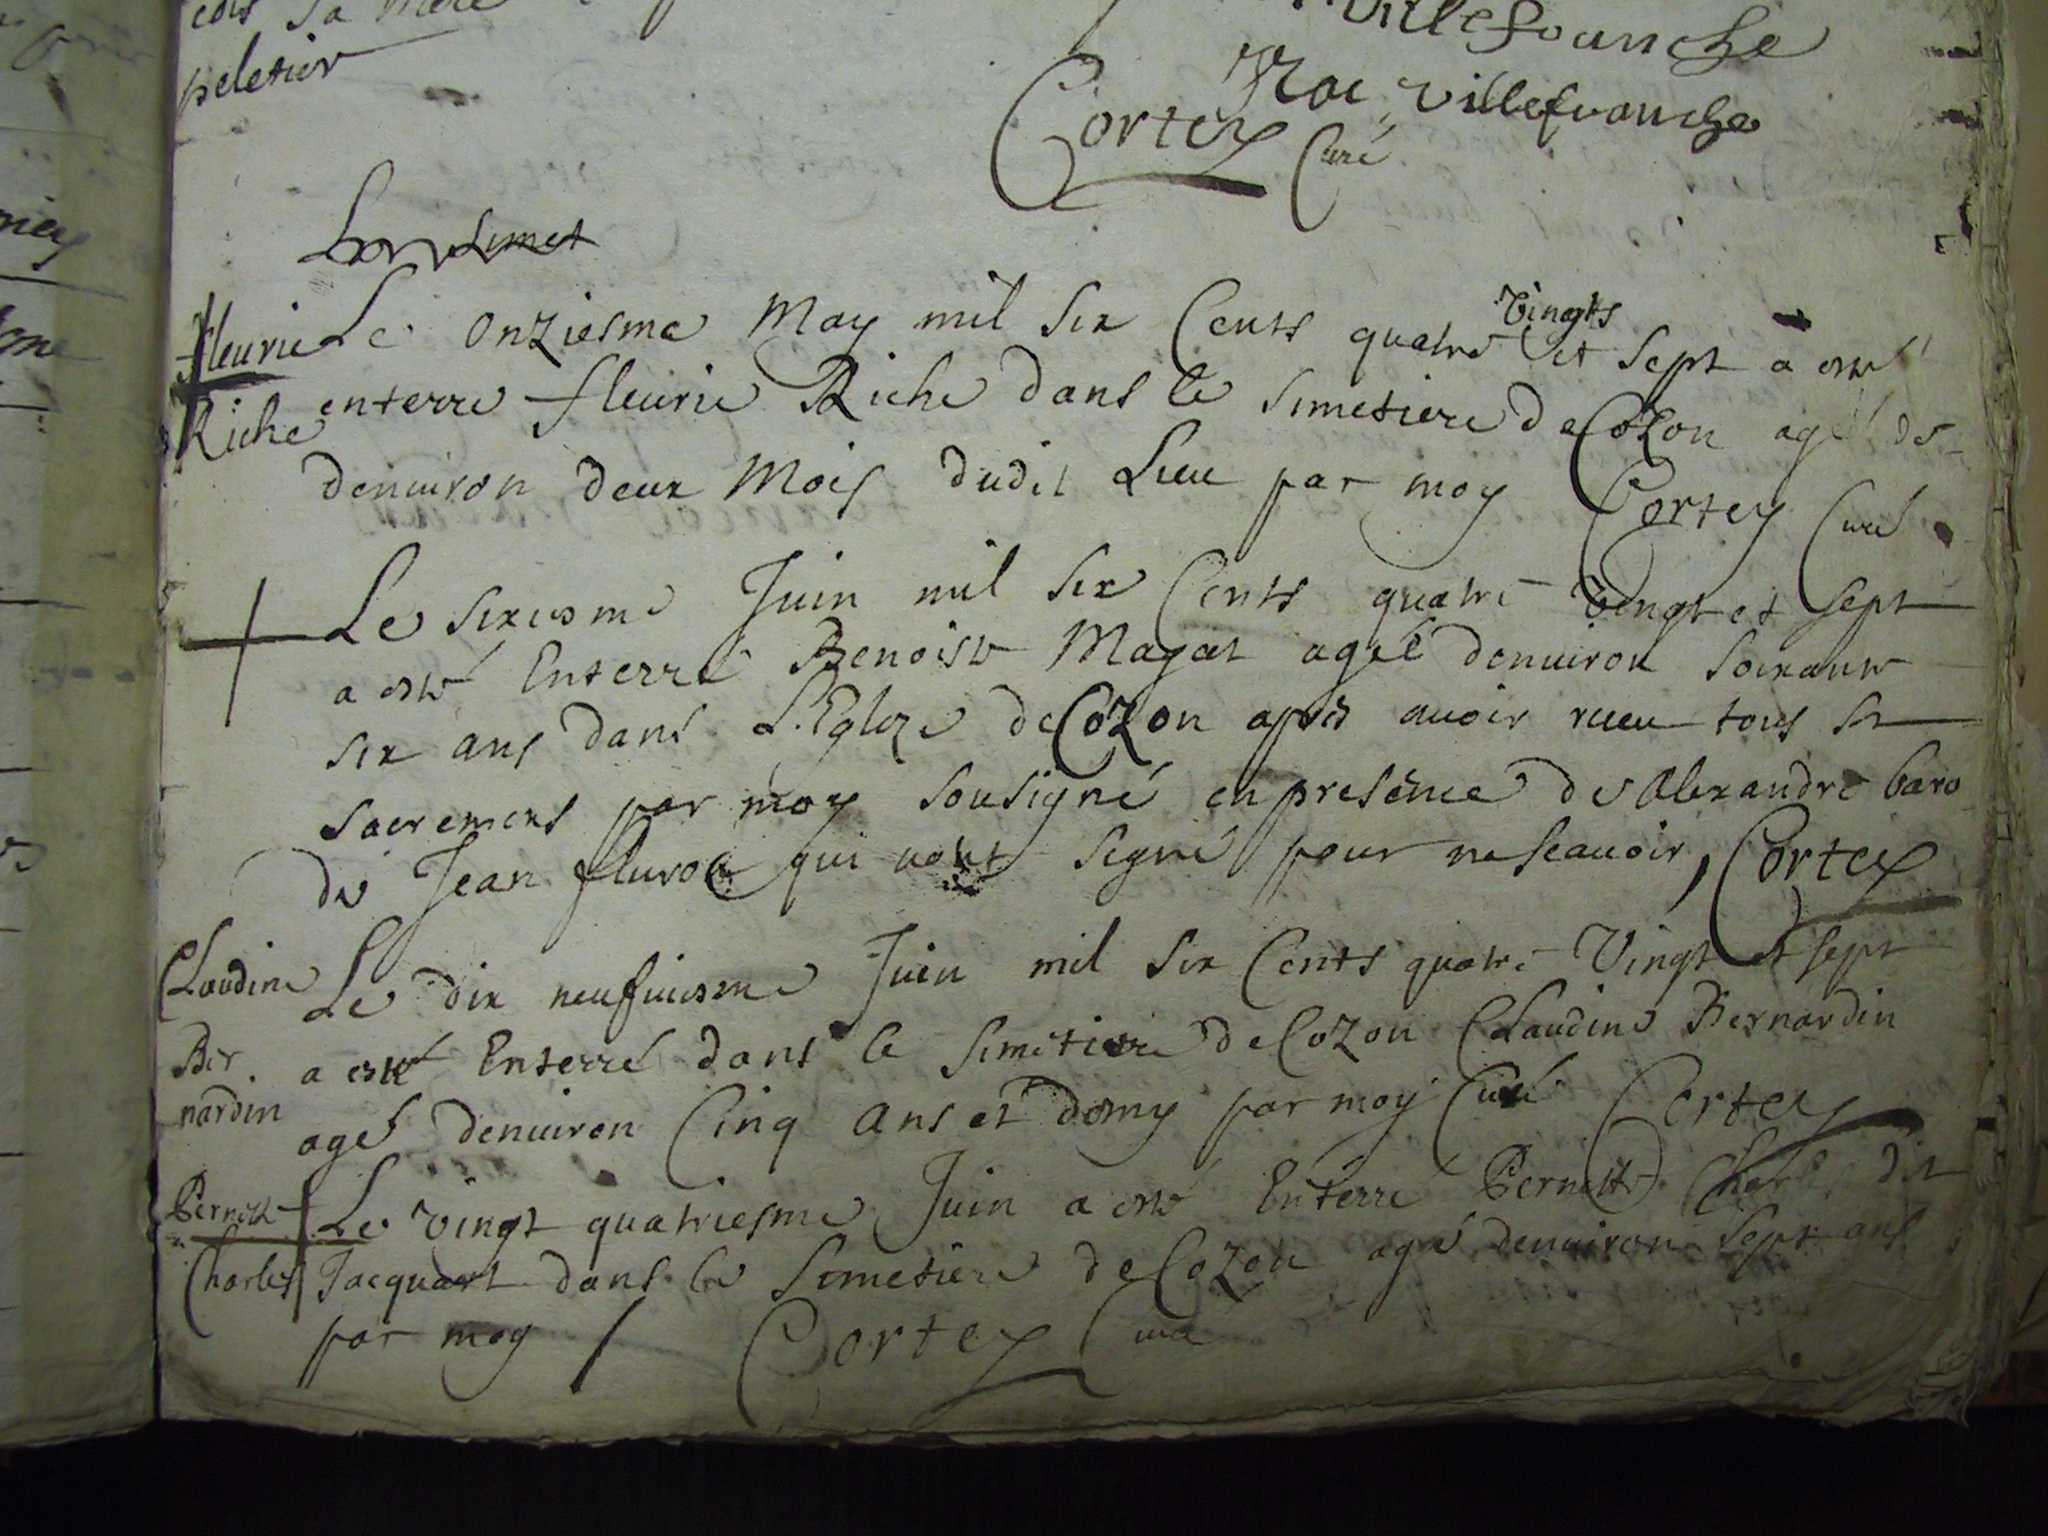 sa mere
villefranche
peletier
Roc villefranche
Cortey Curé
fleurie Le onziesme May mil six Cents quatre vingts et sept a esté
Riche enterre fleurie Riche dans le simetiere de Cozon agéé de
denuiron deux Mois dudit Lieu par moy Cortey Curé
Le sixiesme Juin mil six Cents quatre vingt et sept
a esté Enterré Benoist Magat agéé denuiron soixante
six ans dans L'Eglize de Cozon apres auoir receu tous se
sacremens par moy sousigné en presence de Alexandre baro
de Jean qui nont signé pour ne scauoir, Cortey
Claudine Le dix neufuiesme Juin mil six Cents quatre Vingt et sept
Ber a esté Enterré dans le simetiere de Cozon Claudine Bernardin
nardin agéé denuiron Cinq Ans et demy par moy Curé Cortey
Pernette Le vingt quatriesme Juin a esté Enterré Pernette Charles dit
Charles Jacquart dans le simetiere de Cozon agé denuiron sept ans
par moy / Cortey Curé